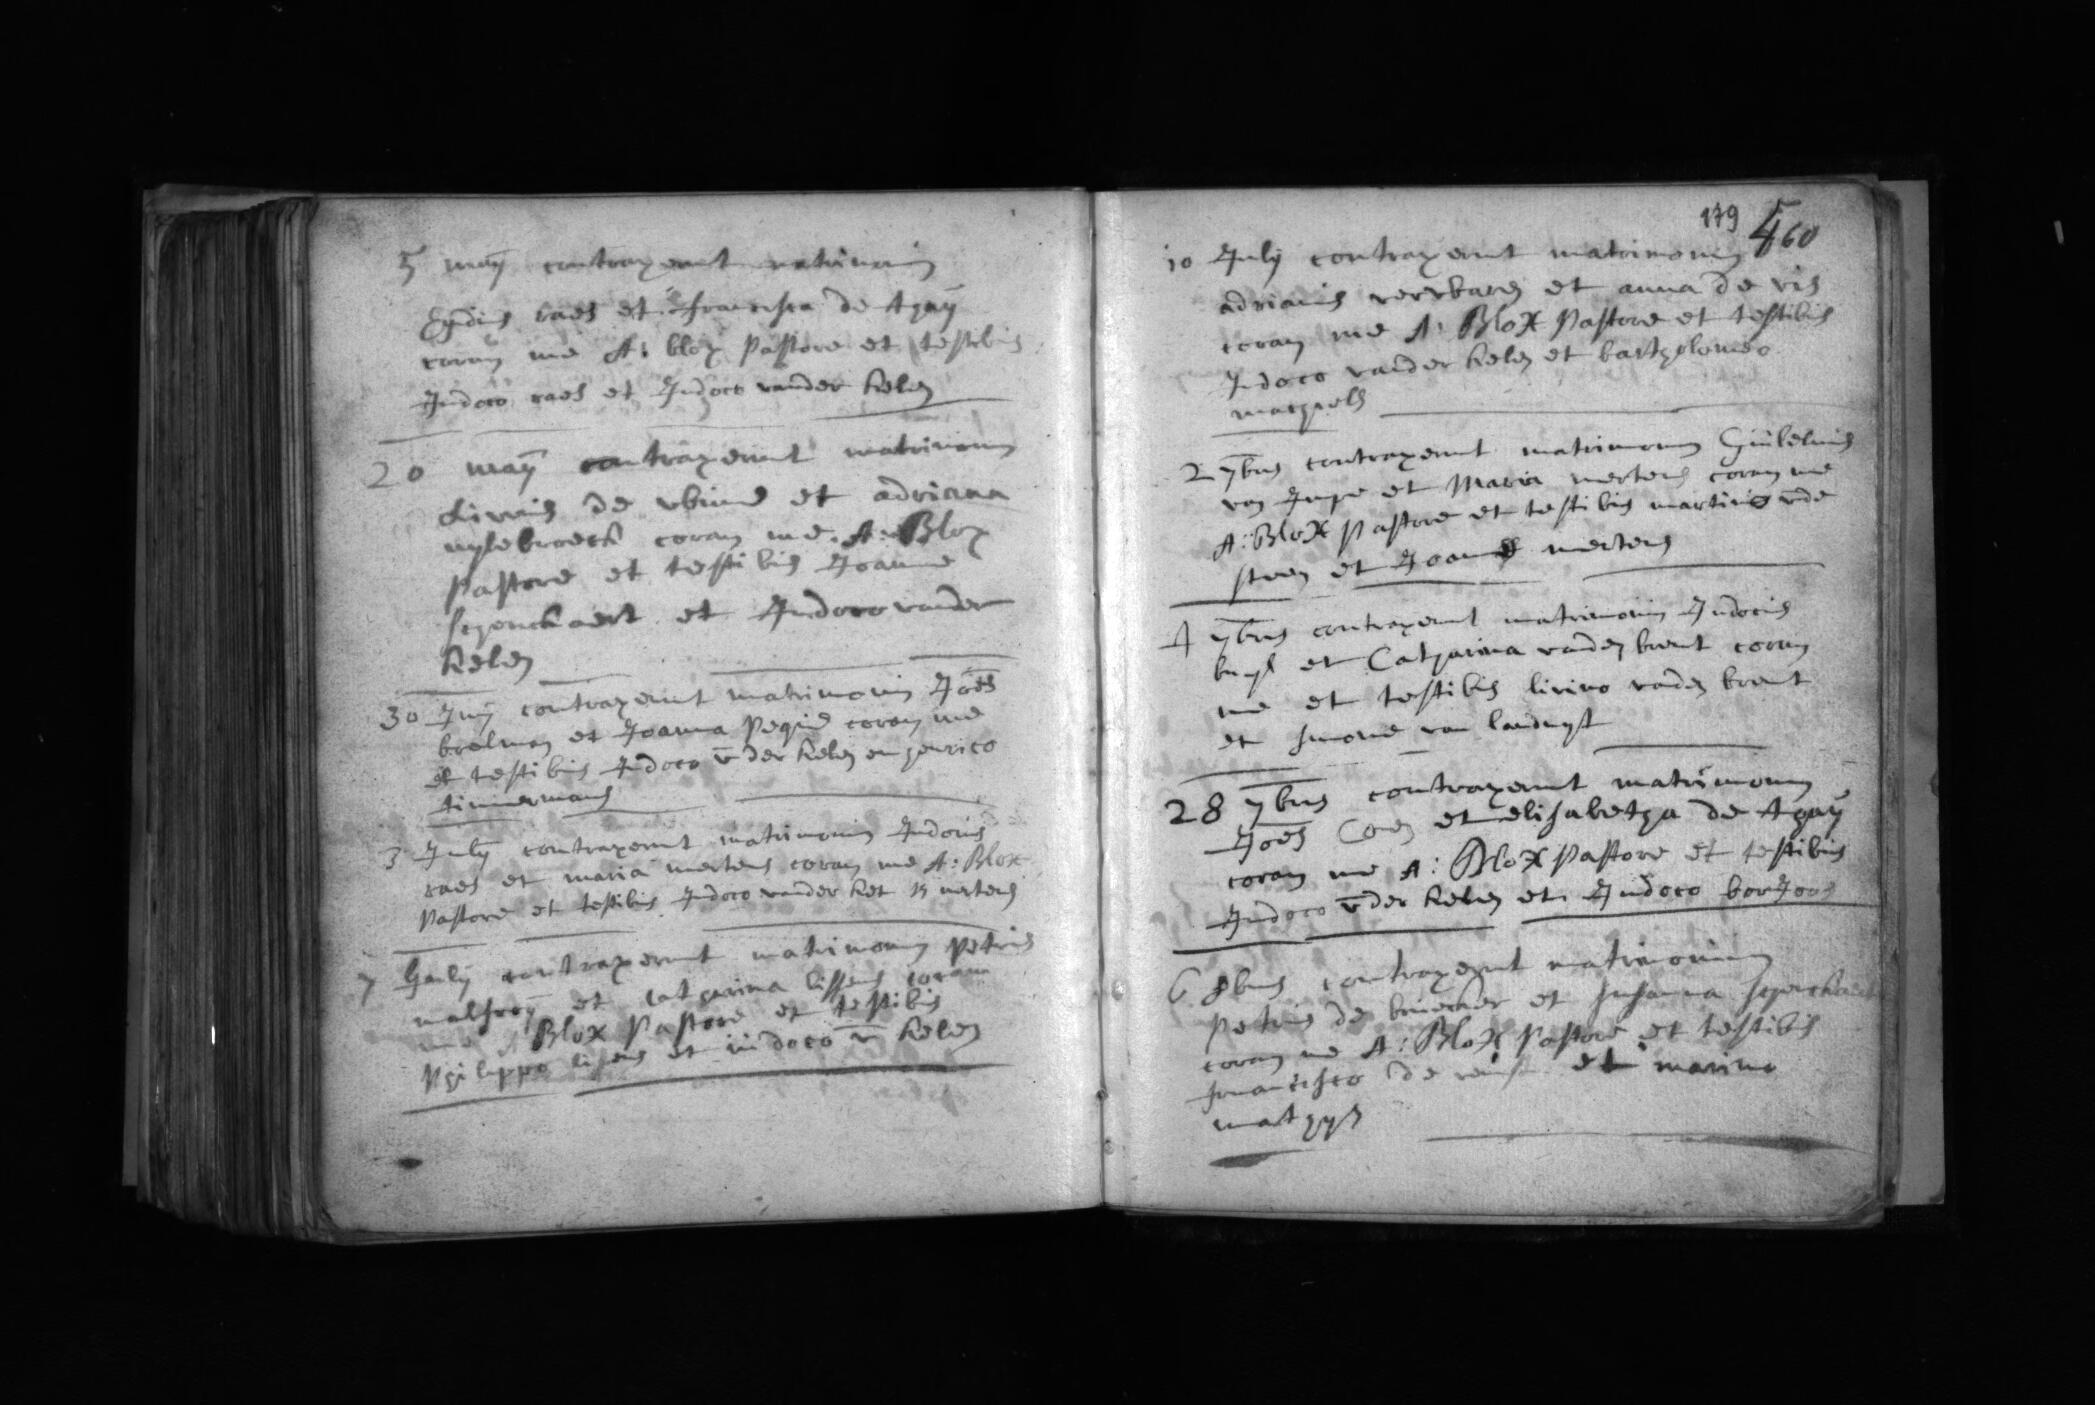 5 maÿ contraxerunt matrimoniu
Egidius raes et francisca de thaÿ
coram me A: blox pastore et testibus
Judoco raes et Judoco vander kelen
20 maÿ contraxerunt matrimonium
Livinus de et adriana
uÿlebroeck coram me A: Blox
Pastore et testibus Joanne
schonckaert et Judoco vander
kelen
30 Junÿ contraxerunt matrimoniu Joes
et Joanna coram me
et testibus Judoco v der kelen en henrico
timmermans
3 Julÿ contraxerunt matrimoniu Judocus
raes et maria mertens coram me A: Blox
Pastore et testibus Judoco vander kel mertens
7 Julÿ contraxerunt matrimoniu Petrus
malfroÿ et catharina lissens coram
me A Blox Pastore et testibus
Philippo lisens et iudoco v kelen
179 560
10 Julÿ contraxerunt matrimoniu
adrianus et anna de vis
coram me A: Blox Pastore et testibus
Judoco vander kelen et bartholomeo
machiels
2 7bris contraxerunt matrimoniu Guilelmus
van Impe et Maria mertens coram me
A: Blox Pastore et testibus martino vde
steen et Joanne mertens
4 7bris contraxerunt matrimoniu Judocus
buÿs et Catharina vanden brent coram
me et testibus livino vanden brent
et simone van landuÿt
28 7bris contraxerunt matrimoniu
Joes Coen et elisabetha de thaÿ
coram me A: Blox Pastore et testibus
Judoco v der kelen et Judoco borJoos
6 8bris contraxerunt matrimonium
Petrus de et susanna schonckaert
coram me A: Blox Pastore et testibus
francisco de et marino
mathÿs